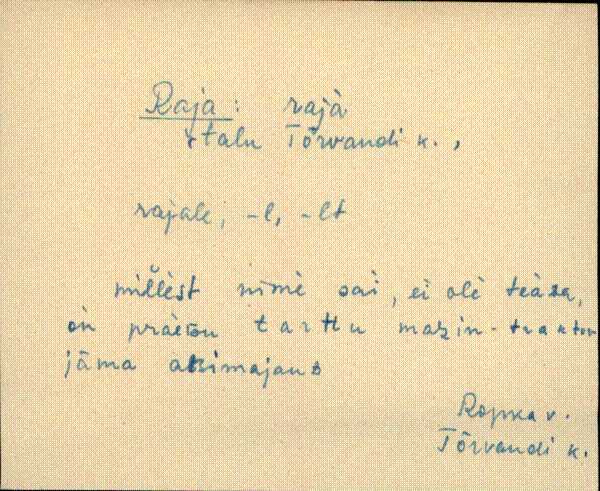 Raja: rajà
talu Tõrvandi k.,
rajale, -l, -lt
millèst nimè sai, ei olè teàda,
on Tartu masin-traktor
jāma
Ropka v.
Tõrvandi k.